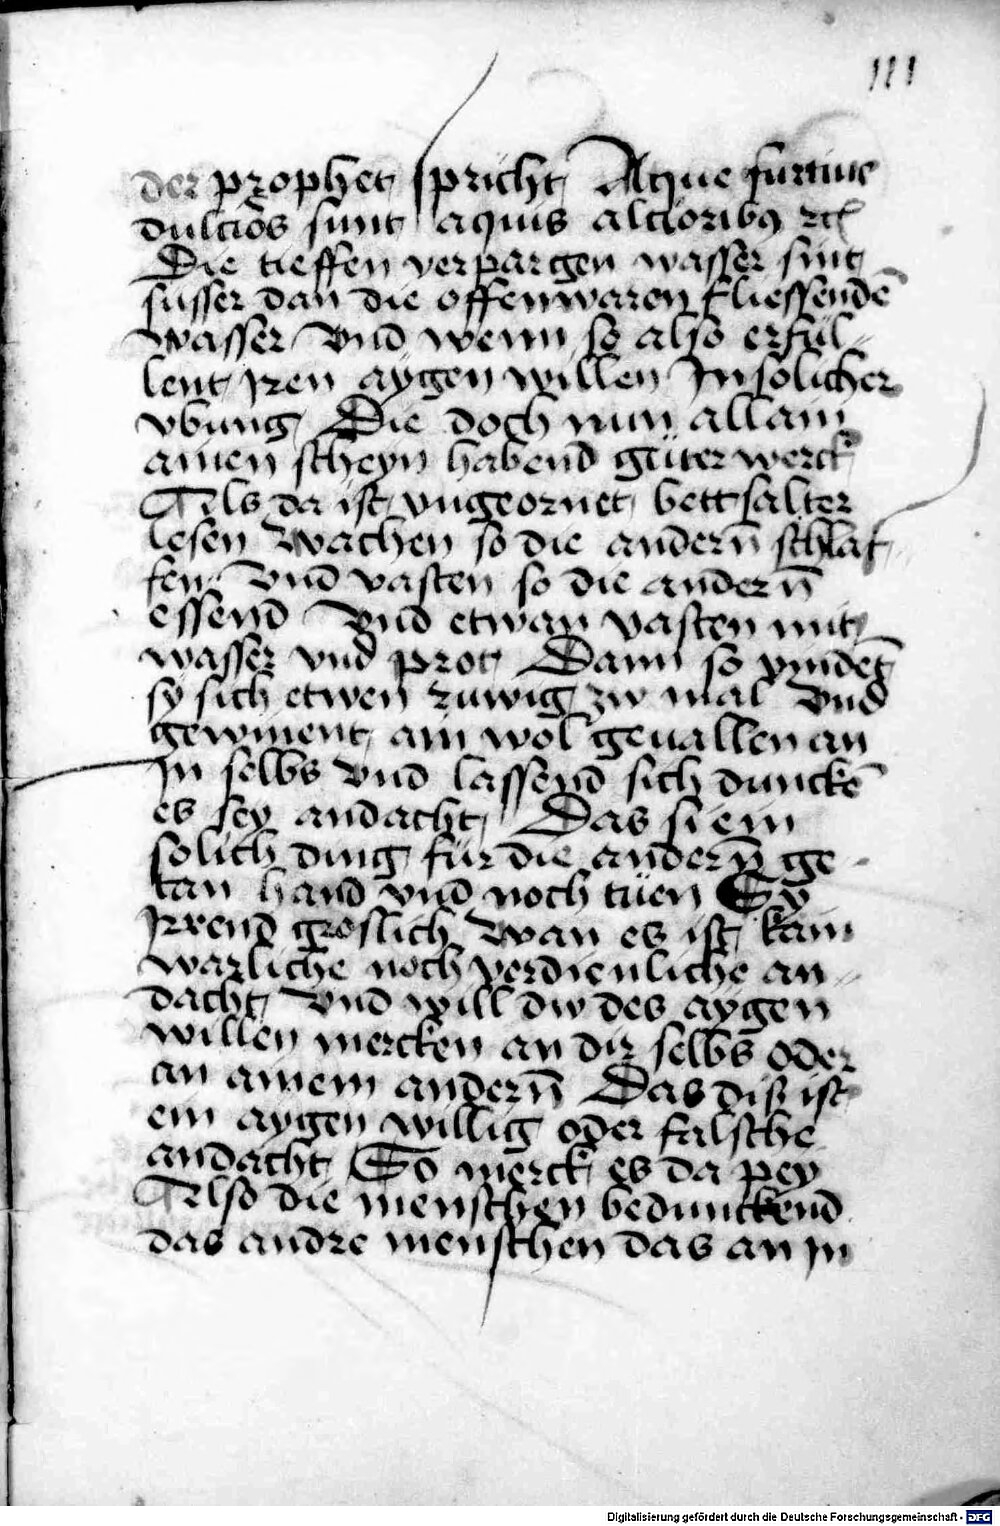 111
der prophet spricht Aque furtiue
dulcio͞s sunt aquis altioribꝯ ꝛc̄
Die tieffen verpargen wasser sint
susser dan die offenwaren fliessendē
wasser Vnd wenn so also erful-
lent jren aygen willen Jn solicher
vbung Die doch nun allain
ainen scheyn habend güter werck
Als da ist vngeornet bett salter
lesen Wachen so die andern̄ schlaf-
fen Vnd vasten so die andern̄
essend Vnd etwan vasten mit
wasser vnd prot Dann so vindet̄
sy sich etwen ruwig zw mal Vnd
gewinent ain wol geuallen an
jn selbs Vnd lassend sich dunckē
es sey andacht Das si ein
solich ding für die andern̄ ge-
tan hand vnd noch tüen Sy
jrrend groslich Wan es ist kain
warliche noch verdienliche an-
dacht Vnd will dw des aygen
willen mercken an dir selbs oder
an ainem andern̄ Das diß ist
ein aygen willig oder falsche
andacht So merck es da pey
Also die menschen bedunckend
das andre menschen das an jn
Digitalisierung gefördert durch die Deutsche Forschungsgemeinschaft - DFG